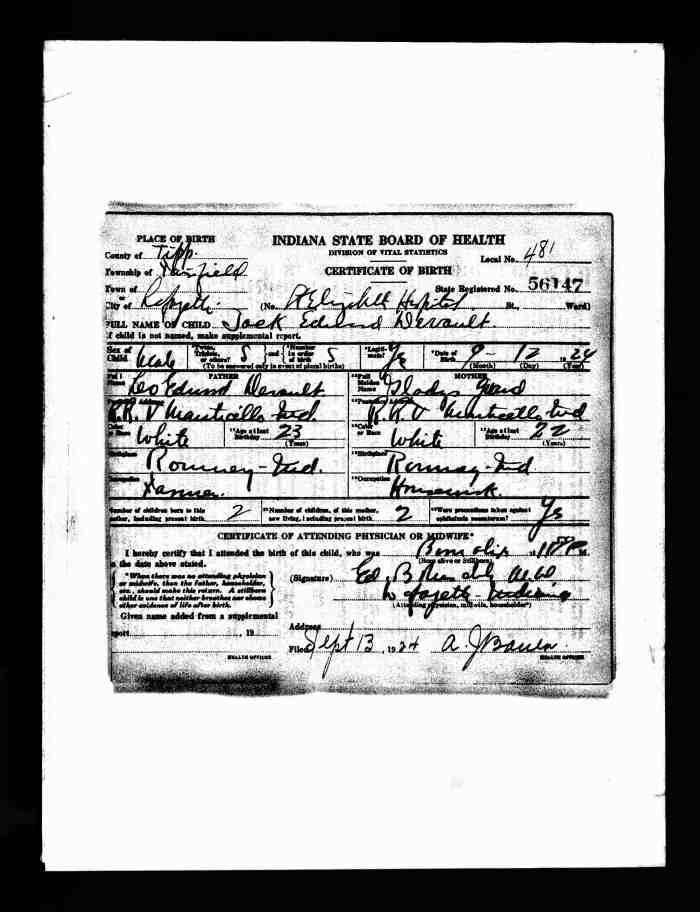 PLACE OF BIRTH
INDIANA STATE BOARD OF HEALTH
County of Tipp.
DIVISION OF VITAL STATISTICS
Local No. 481
Township of Fairfield
CERTIFICATE OF BIRTH
Town of
State Registered No. 56147
or
City of Lafayette (No. St Elizabeth Hospital St., Ward)
FULL NAME OF CHILD Jack Edmund Derault
If child is not named, make supplemental report.
Sex of Child Male Twins, Triplets, or others? S and Number in order of birth S Legitimate? Yes Date of Birth 9 - 12 1924
(To be answered only in event of plural births) (Month) (Day) (Year)
FATHER MOTHER
Full Name Leo Edmund Derault Full Maiden Name Gladys Ward
R.R. V Monticello Ind. R.R. V Monticello Ind
Color or Race White Age at last Birthday 23 (Years) Color or Race White Age at last Birthday 22 (Years)
Birthplace Romney - Ind. Birthplace Romney - Ind
Occupation Farmer. Occupation Housework.
Number of children born to this mother, including present birth 2 Number of children, of this mother, now living, including present birth 2 Were precautions taken against ophthalmia neonatorum? Yes
CERTIFICATE OF ATTENDING PHYSICIAN OR MIDWIFE*
I hereby certify that I attended the birth of this child, who was Born alive at P M.
on the date above stated. (Born alive or Stillborn)
*When there was no attending physician or midwife, then the father, householder, etc., should make this return. A stillborn child is one that neither breathes nor shows other evidence of life after birth.
(Signature) Ed. B
(Attending physician, midwife, householder*)
Given name added from a supplemental
report , 19
Address
Filed Sept 13, 1924 A. J Bauer
HEALTH OFFICER HEALTH OFFICER